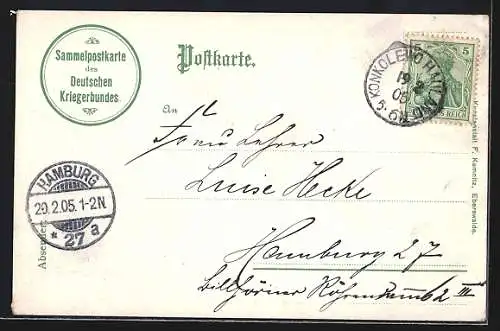 Sammelpostkarte
des
Deutschen
Kriegerbundes.
Postkarte.
An
Frau Lehrer
Luise Hecke
Hamburg 27
Billhörner Röhrendamm
III
KONKOLEWO
19 2
05
5-6N
5
REICH
HAMBURG
20.2.05.1-2N.
* 27 a
Absender:
Kunstanstalt P. Kemnitz, Eberswalde.